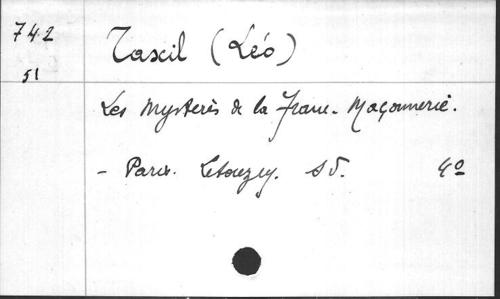 742
51
Taxil (Léo)
Les Mystères de la Franc-Maçonnerie.
- Paris. Letouzey. s d. 4º